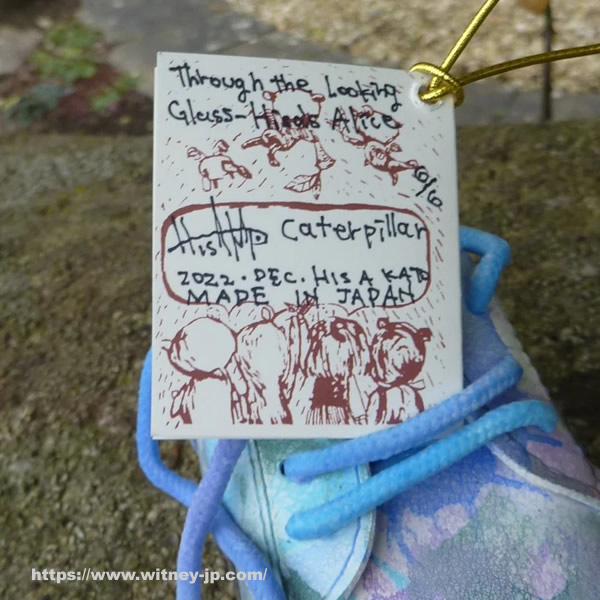 Through the Looking
Glass-Hisa's Alice
6/6
Caterpillar
2022.DEC.HISA KATO
MADE IN JAPAN
https://www.witney-jp.com/